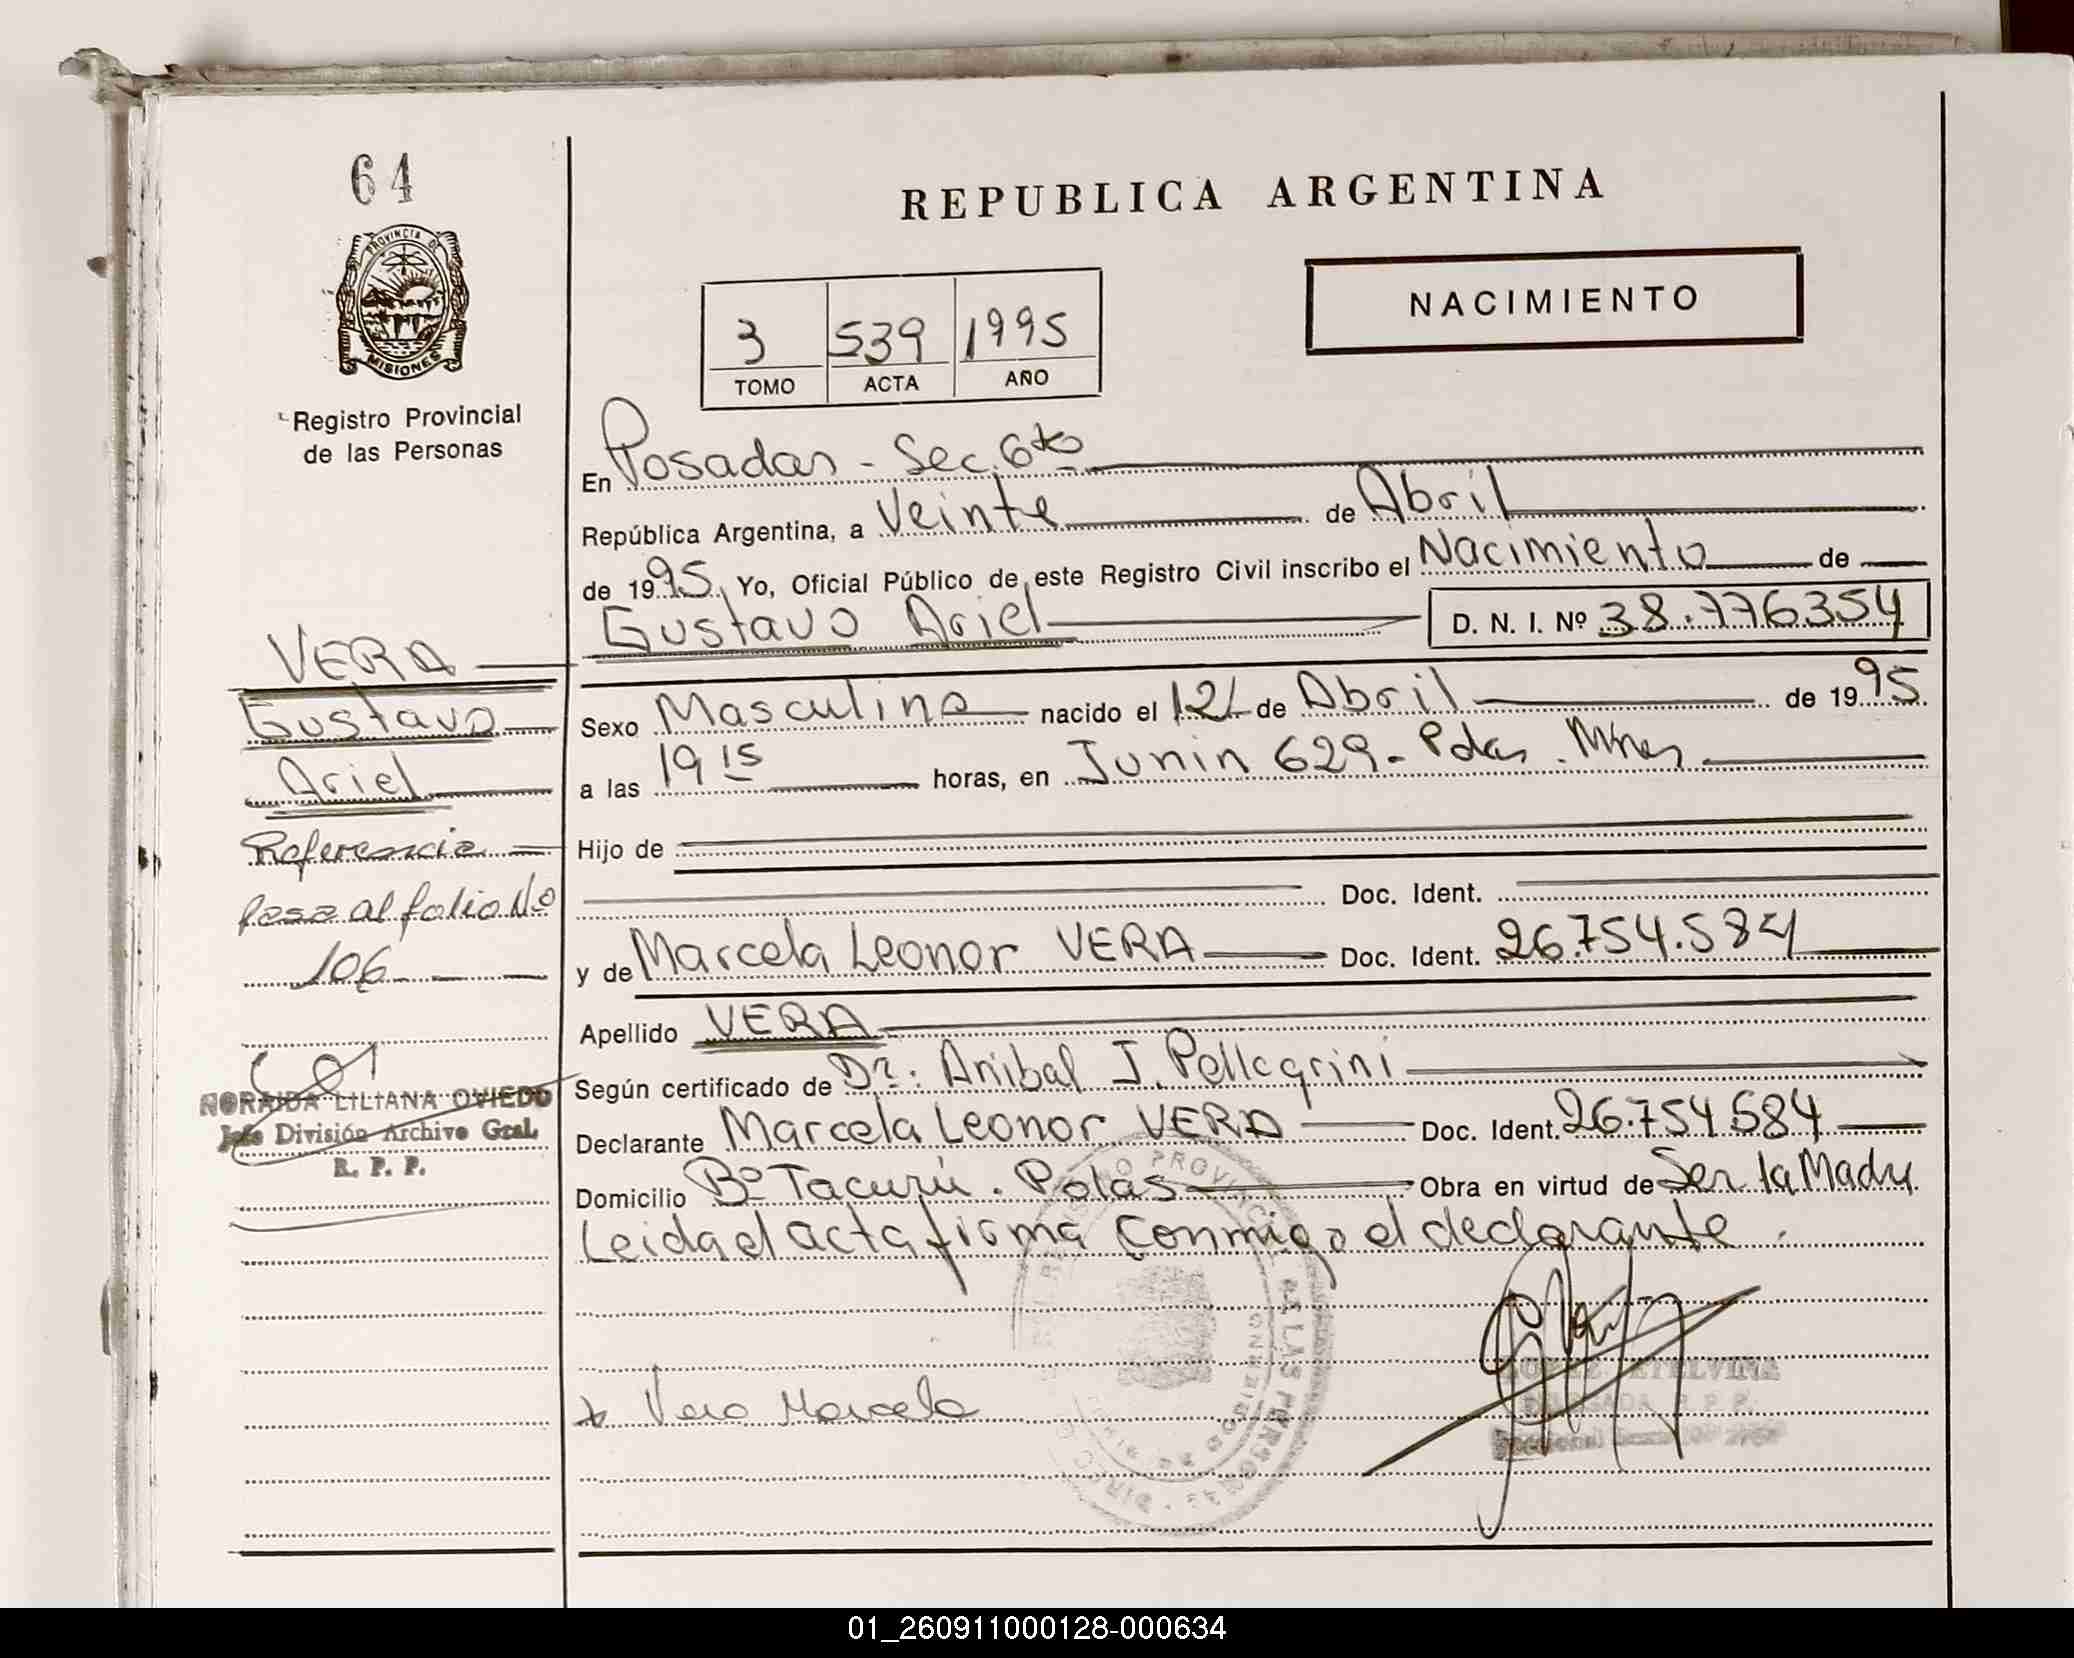 64
REPUBLICA ARGENTINA
PROVINCIA DE
MISIONES
NACIMIENTO
3 539 1995
TOMO ACTA AÑO
Registro Provincial
de las Personas
En Posadas - Sec. 6ta
República Argentina, a Veinte de Abril
de 1995. Yo, Oficial Público de este Registro Civil inscribo el Nacimiento de
Gustavo Ariel D. N. I. Nº 38.776354
VERA
Gustavo
Ariel
Referencia
Pasa al folio No
106
Sexo Masculino nacido el 12 de Abril de 1995.
a las 19 15 horas, en Junin 629 - Pdas. Mnes
Hijo de
Doc. Ident.
y de Marcela Leonor VERA Doc. Ident. 26.754.584
Apellido VERA
Según certificado de Dr. Anibal J. Pellegrini
Declarante Marcela Leonor VERA Doc. Ident. 26.754 584
Domicilio Bº Tacurú. Pdas Obra en virtud de Ser la Madre
Leida el acta firma conmigo el declarante.
NORAIDA LILIANA OVIEDO
Jefe División Archivo Gral.
R. P. P.
x Vera Marcela
ETELVINA
R. P. P.
01_260911000128-000634